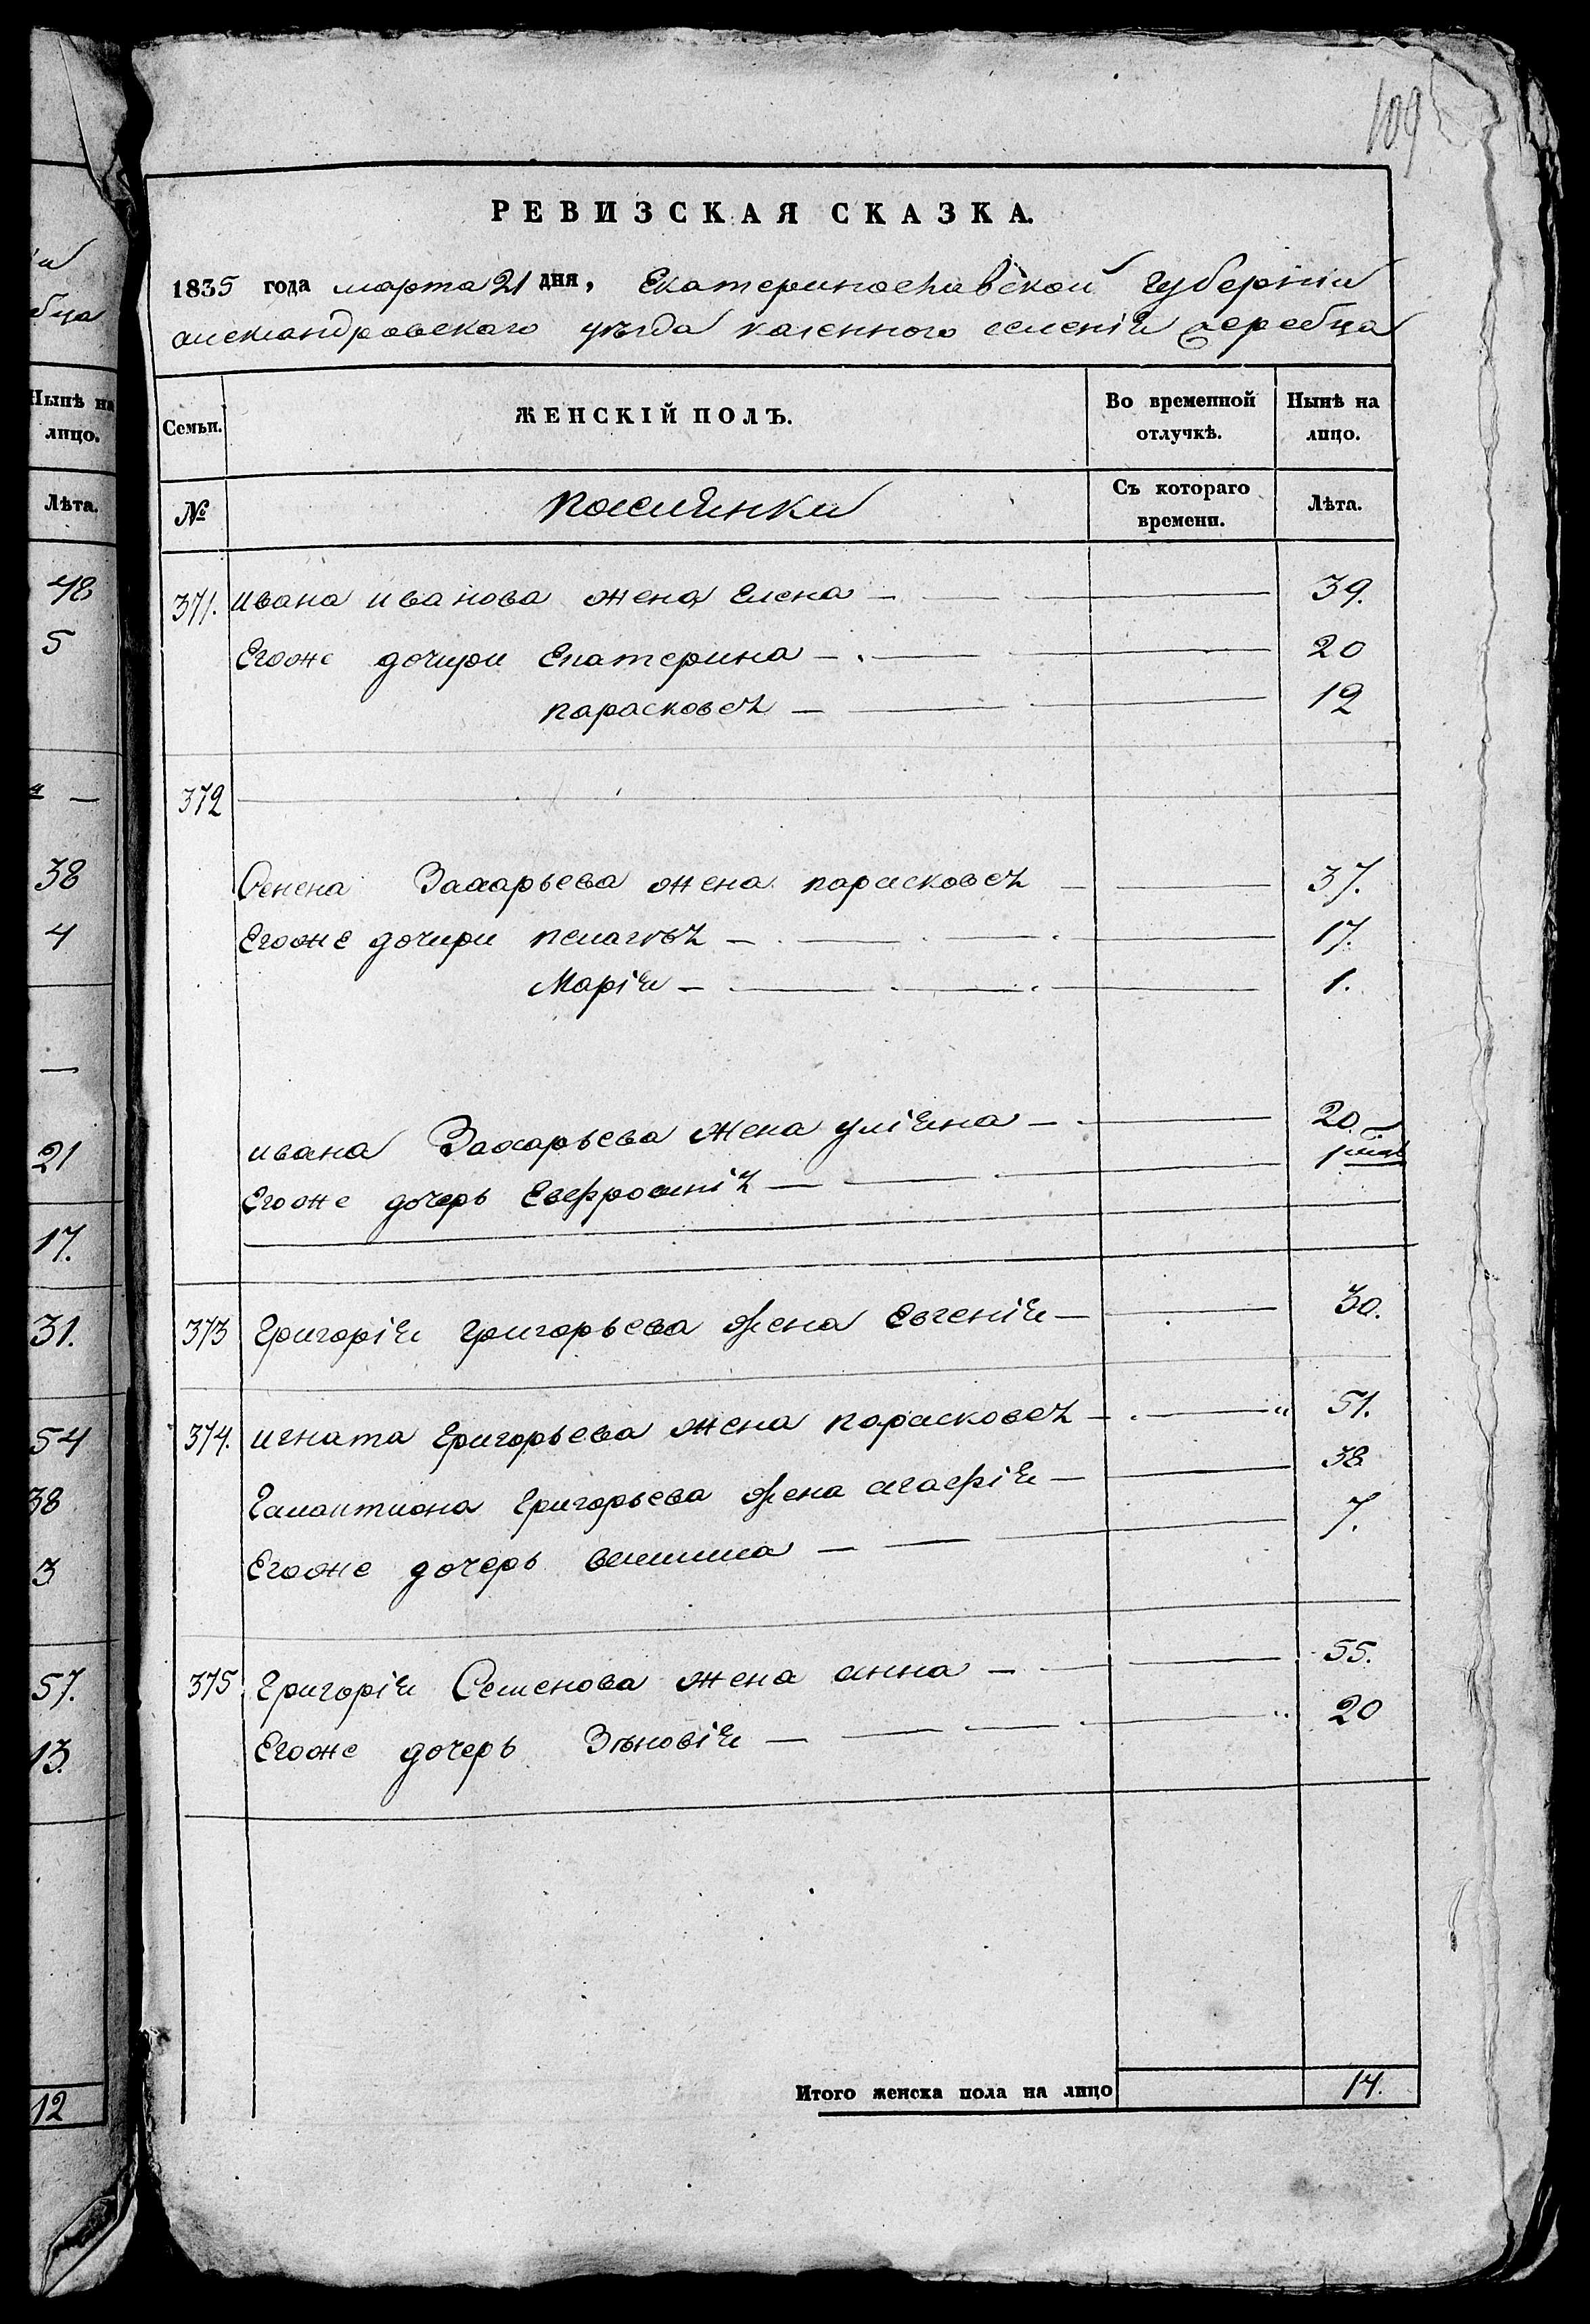 109
РЕВИЗСКАЯ СКАЗКА.
1835 года марта 21 дня, Екатеринославской Губерніи
александровскаго уѣзда казенного селенія жеребца
Семьи.
ЖЕНСКІЙ ПОЛЪ.
Во временной отлучкѣ.
Нынѣ на лицо.
№
поселянки
Съ котораго времени.
Лѣта.
371. ивана иванова жена Елена — 39.
Егоже дочири Екатерина — 20
парасковея — 12
372
Семена Захарьева жена парасковея — 37.
Егоже дочири пелагѣя — 17.
Марія — 1.
ивана Захарьева жена уліяна — 20.
Егоже дочерь Евфросинія — 1
373 Григорія григорьева жена Евгенія — 30.
374. игната григорьева жена парасковея — 51.
Галактиона григорьева жена агафія — 38
Егоже дочерь — 7.
375 Григорія Семенова жена анна — 55.
Егоже дочерь Зѣновія — 20
Итого женска пола на лицо 14.
Нынѣ на лицо.
Лѣта.
48
5
—
38
4
—
21
17.
31.
54
38
3
57.
13.
12